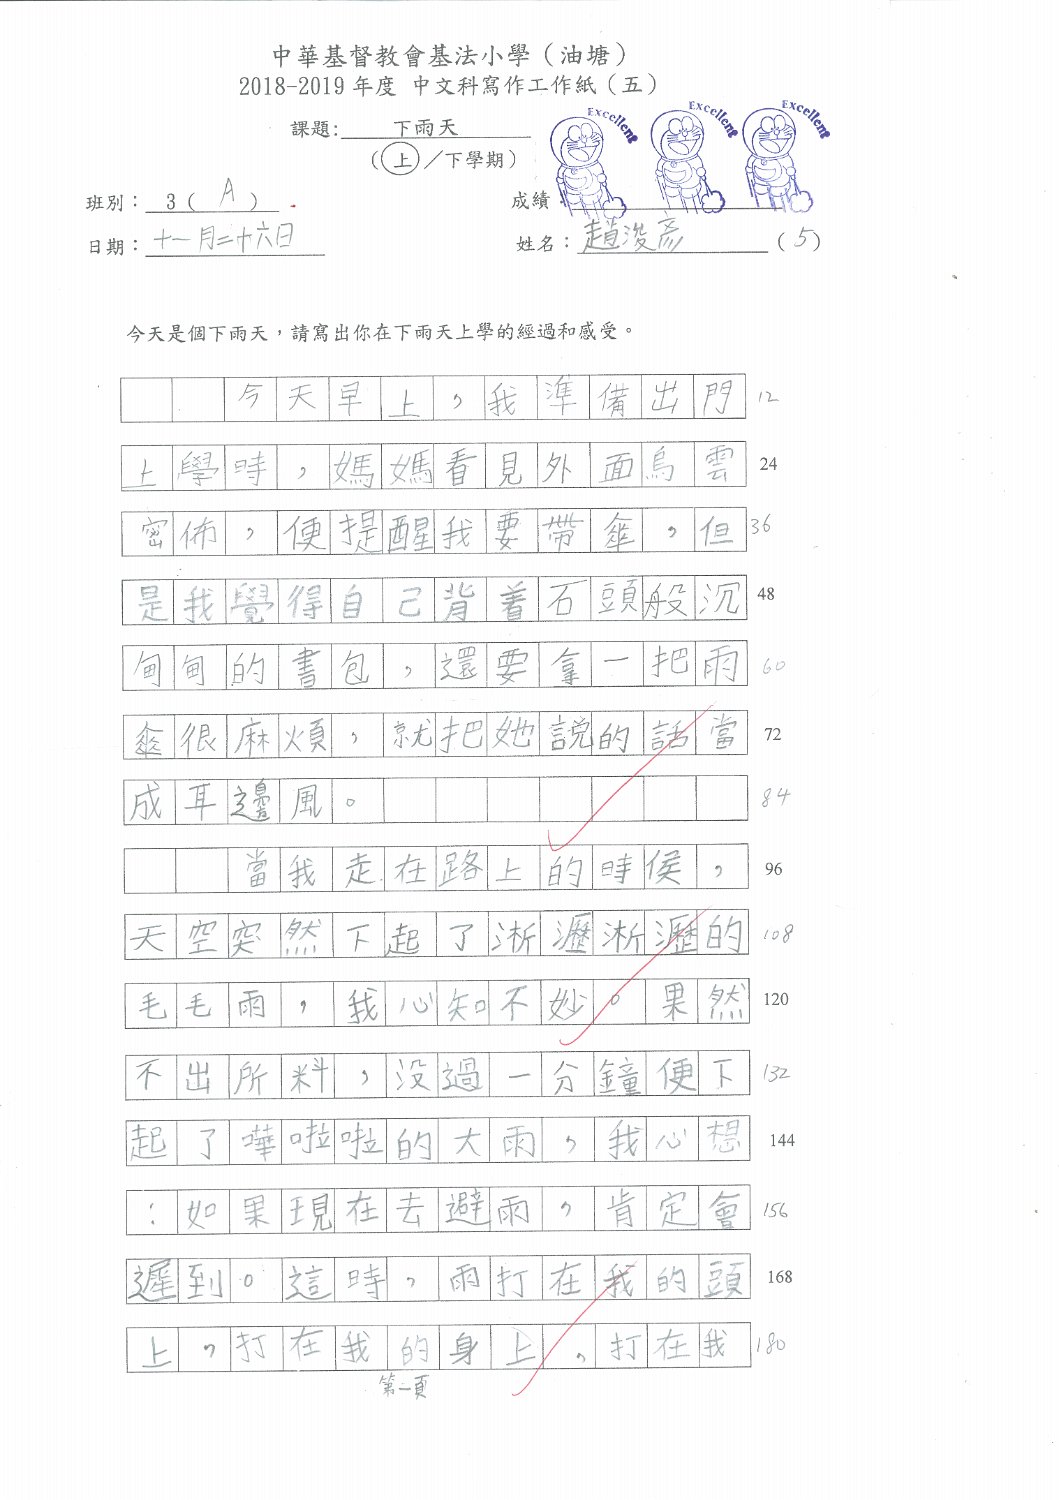 中華基督教會基法小學（油塘）
2018-2019 年度 中文科寫作工作紙（五）
Excellent Excellent Excellent
課題: 下雨天
（上／下學期）
班別： 3（ A ） 成績：
日期：十一月二十六日 姓名：趙浚彥（5）
今天是個下雨天，請寫出你在下雨天上學的經過和感受。
今天早上，我準備出門 12
上學時，媽媽看見外面烏雲 24
密佈，便提醒我要帶傘，但 36
是我覺得自己背着石頭般沉 48
甸甸的書包，還要拿一把雨 60
傘很麻煩，就把她說的話當 72
成耳邊風。 84
當我走在路上的時侯， 96
天空突然下起了淅瀝淅瀝的 108
毛毛雨，我心知不妙。果然 120
不出所料，沒過一分鐘便下 132
起了嘩啦啦的大雨，我心想 144
：如果現在去避雨，肯定會 156
遲到。這時，雨打在我的頭 168
上，打在我的身上，打在我 180
第一頁